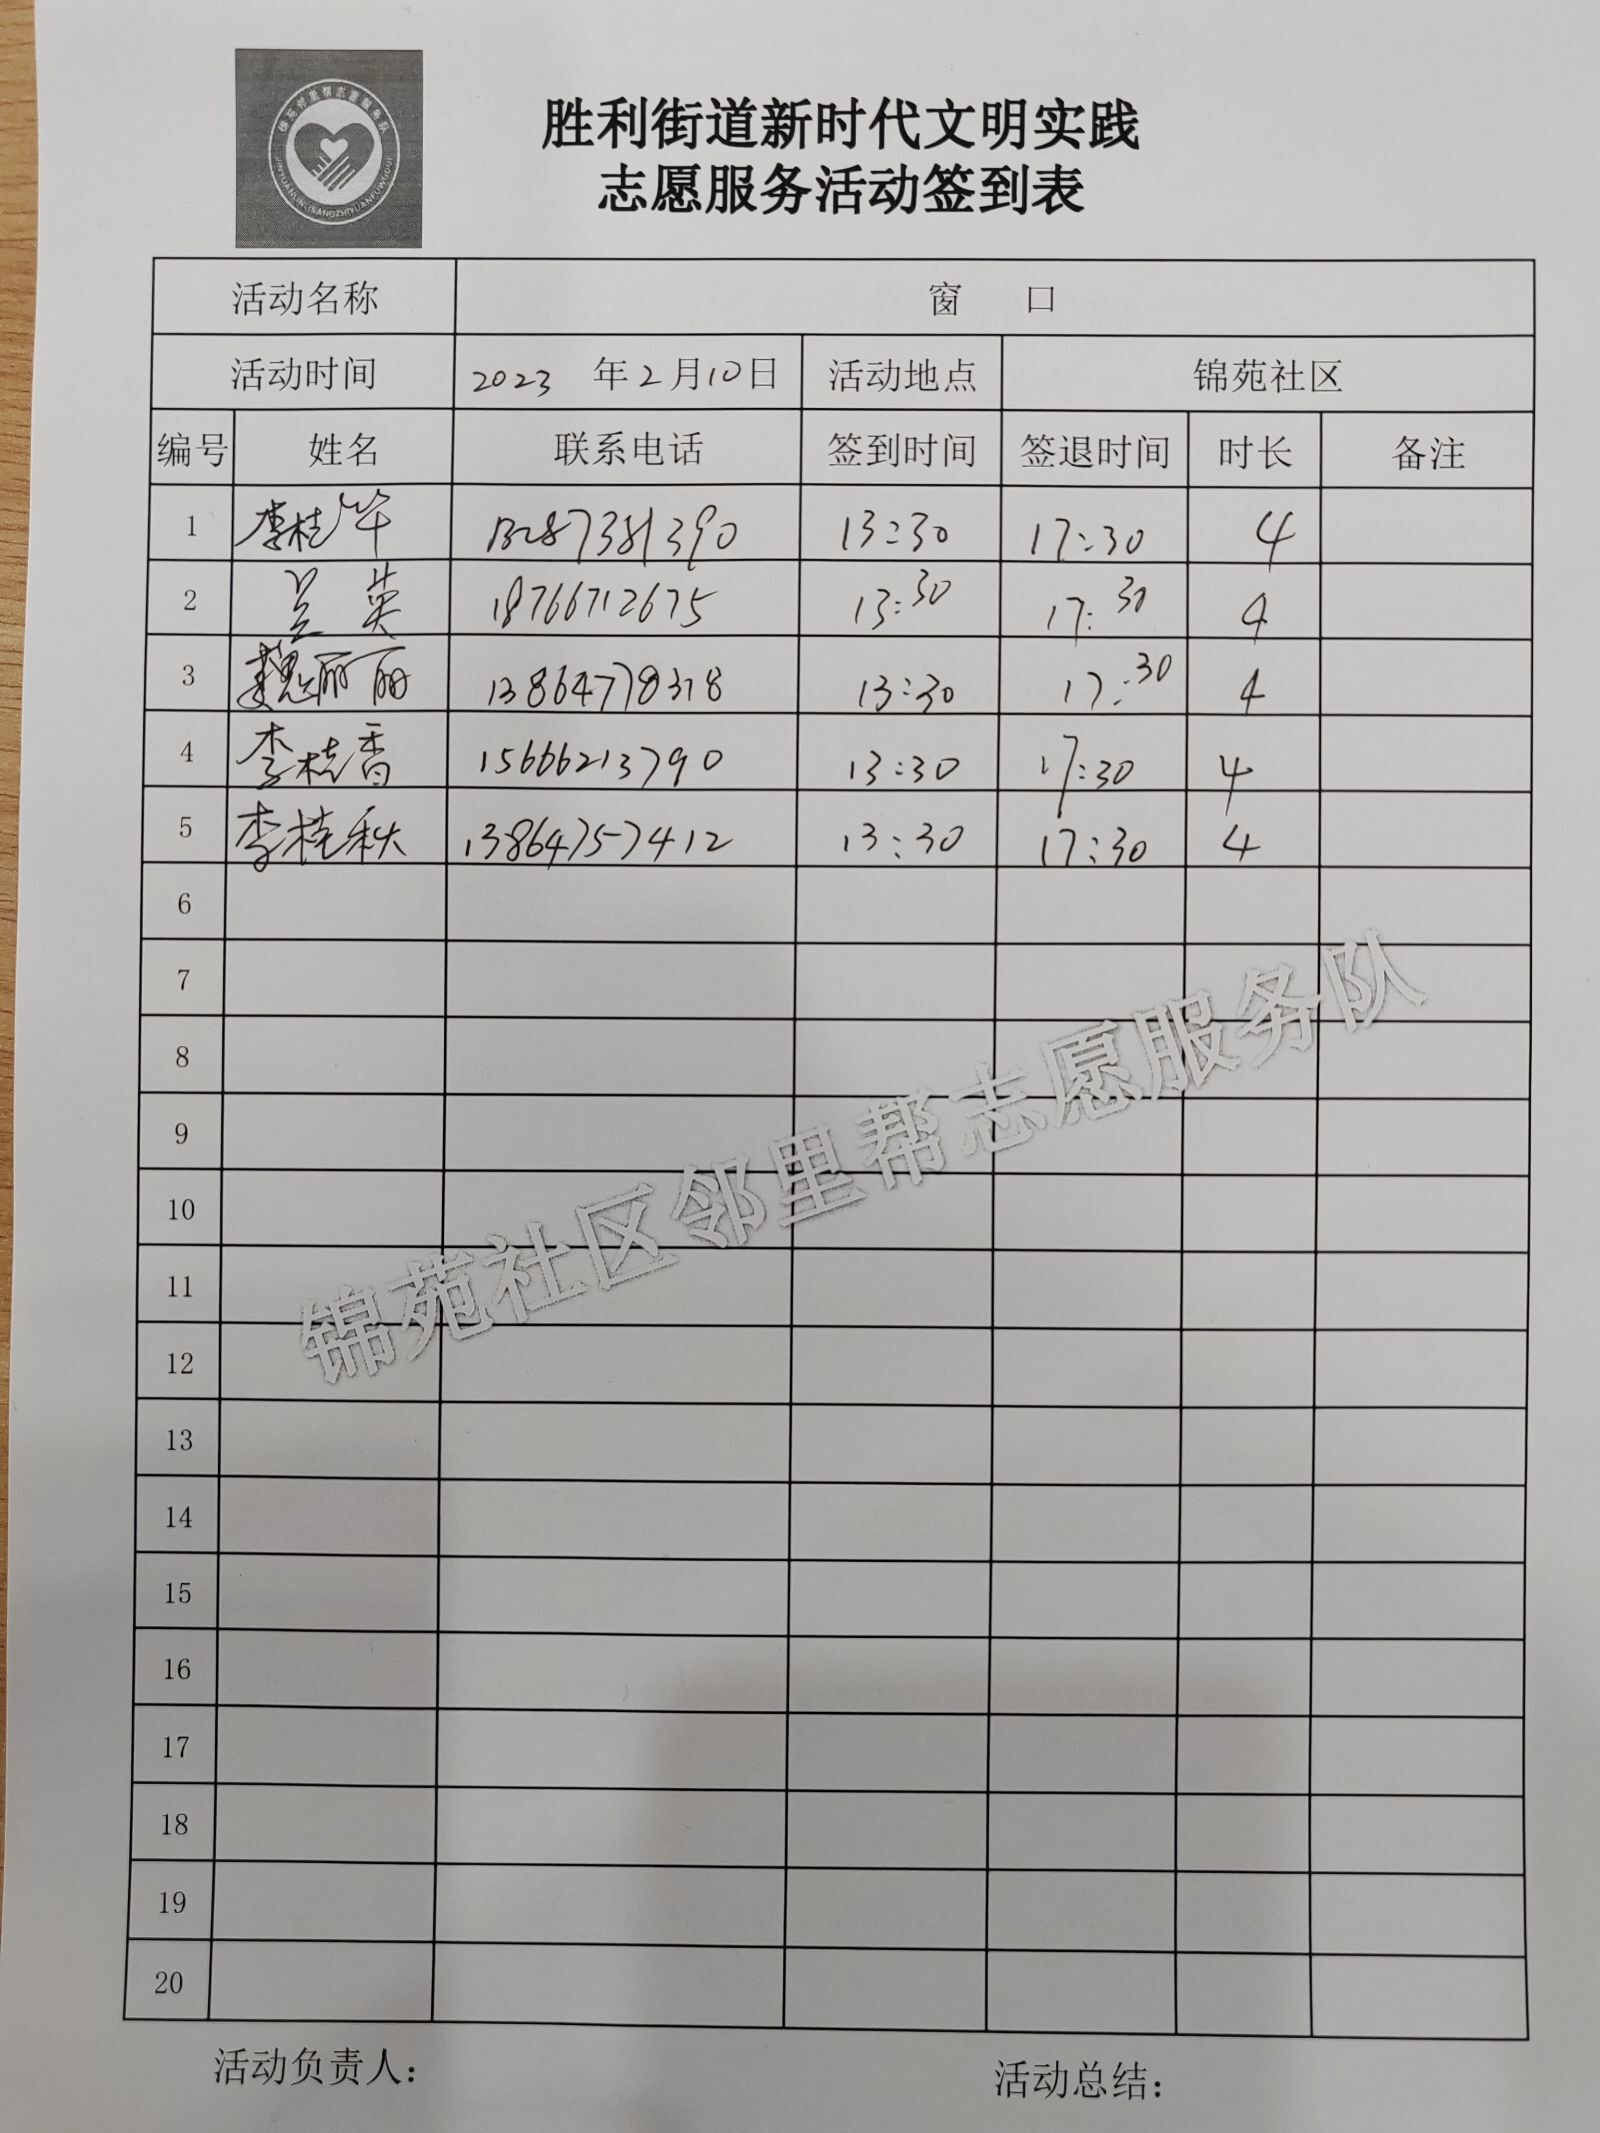 锦苑邻里帮志愿服务队
JINYUANLINLIBANGZHIYUANFUWUDUI
胜利街道新时代文明实践
志愿服务活动签到表
活动名称 窗 口
活动时间 2023 年2月10日 活动地点 锦苑社区
编号 姓名 联系电话 签到时间 签退时间 时长 备注
1 李桂华 13287381390 13:30 17:30 4
2 兰英 18766712675 13:30 17:30 4
3 魏丽丽 13:30 17:30 4
4 李桂香 15666213790 13:30 17:30 4
5 李桂秋 13864757412 13:30 17:30 4
6
7
8
9
10
11
12
13
14
15
16
17
18
19
20
锦苑社区邻里帮志愿服务队
活动负责人： 活动总结：